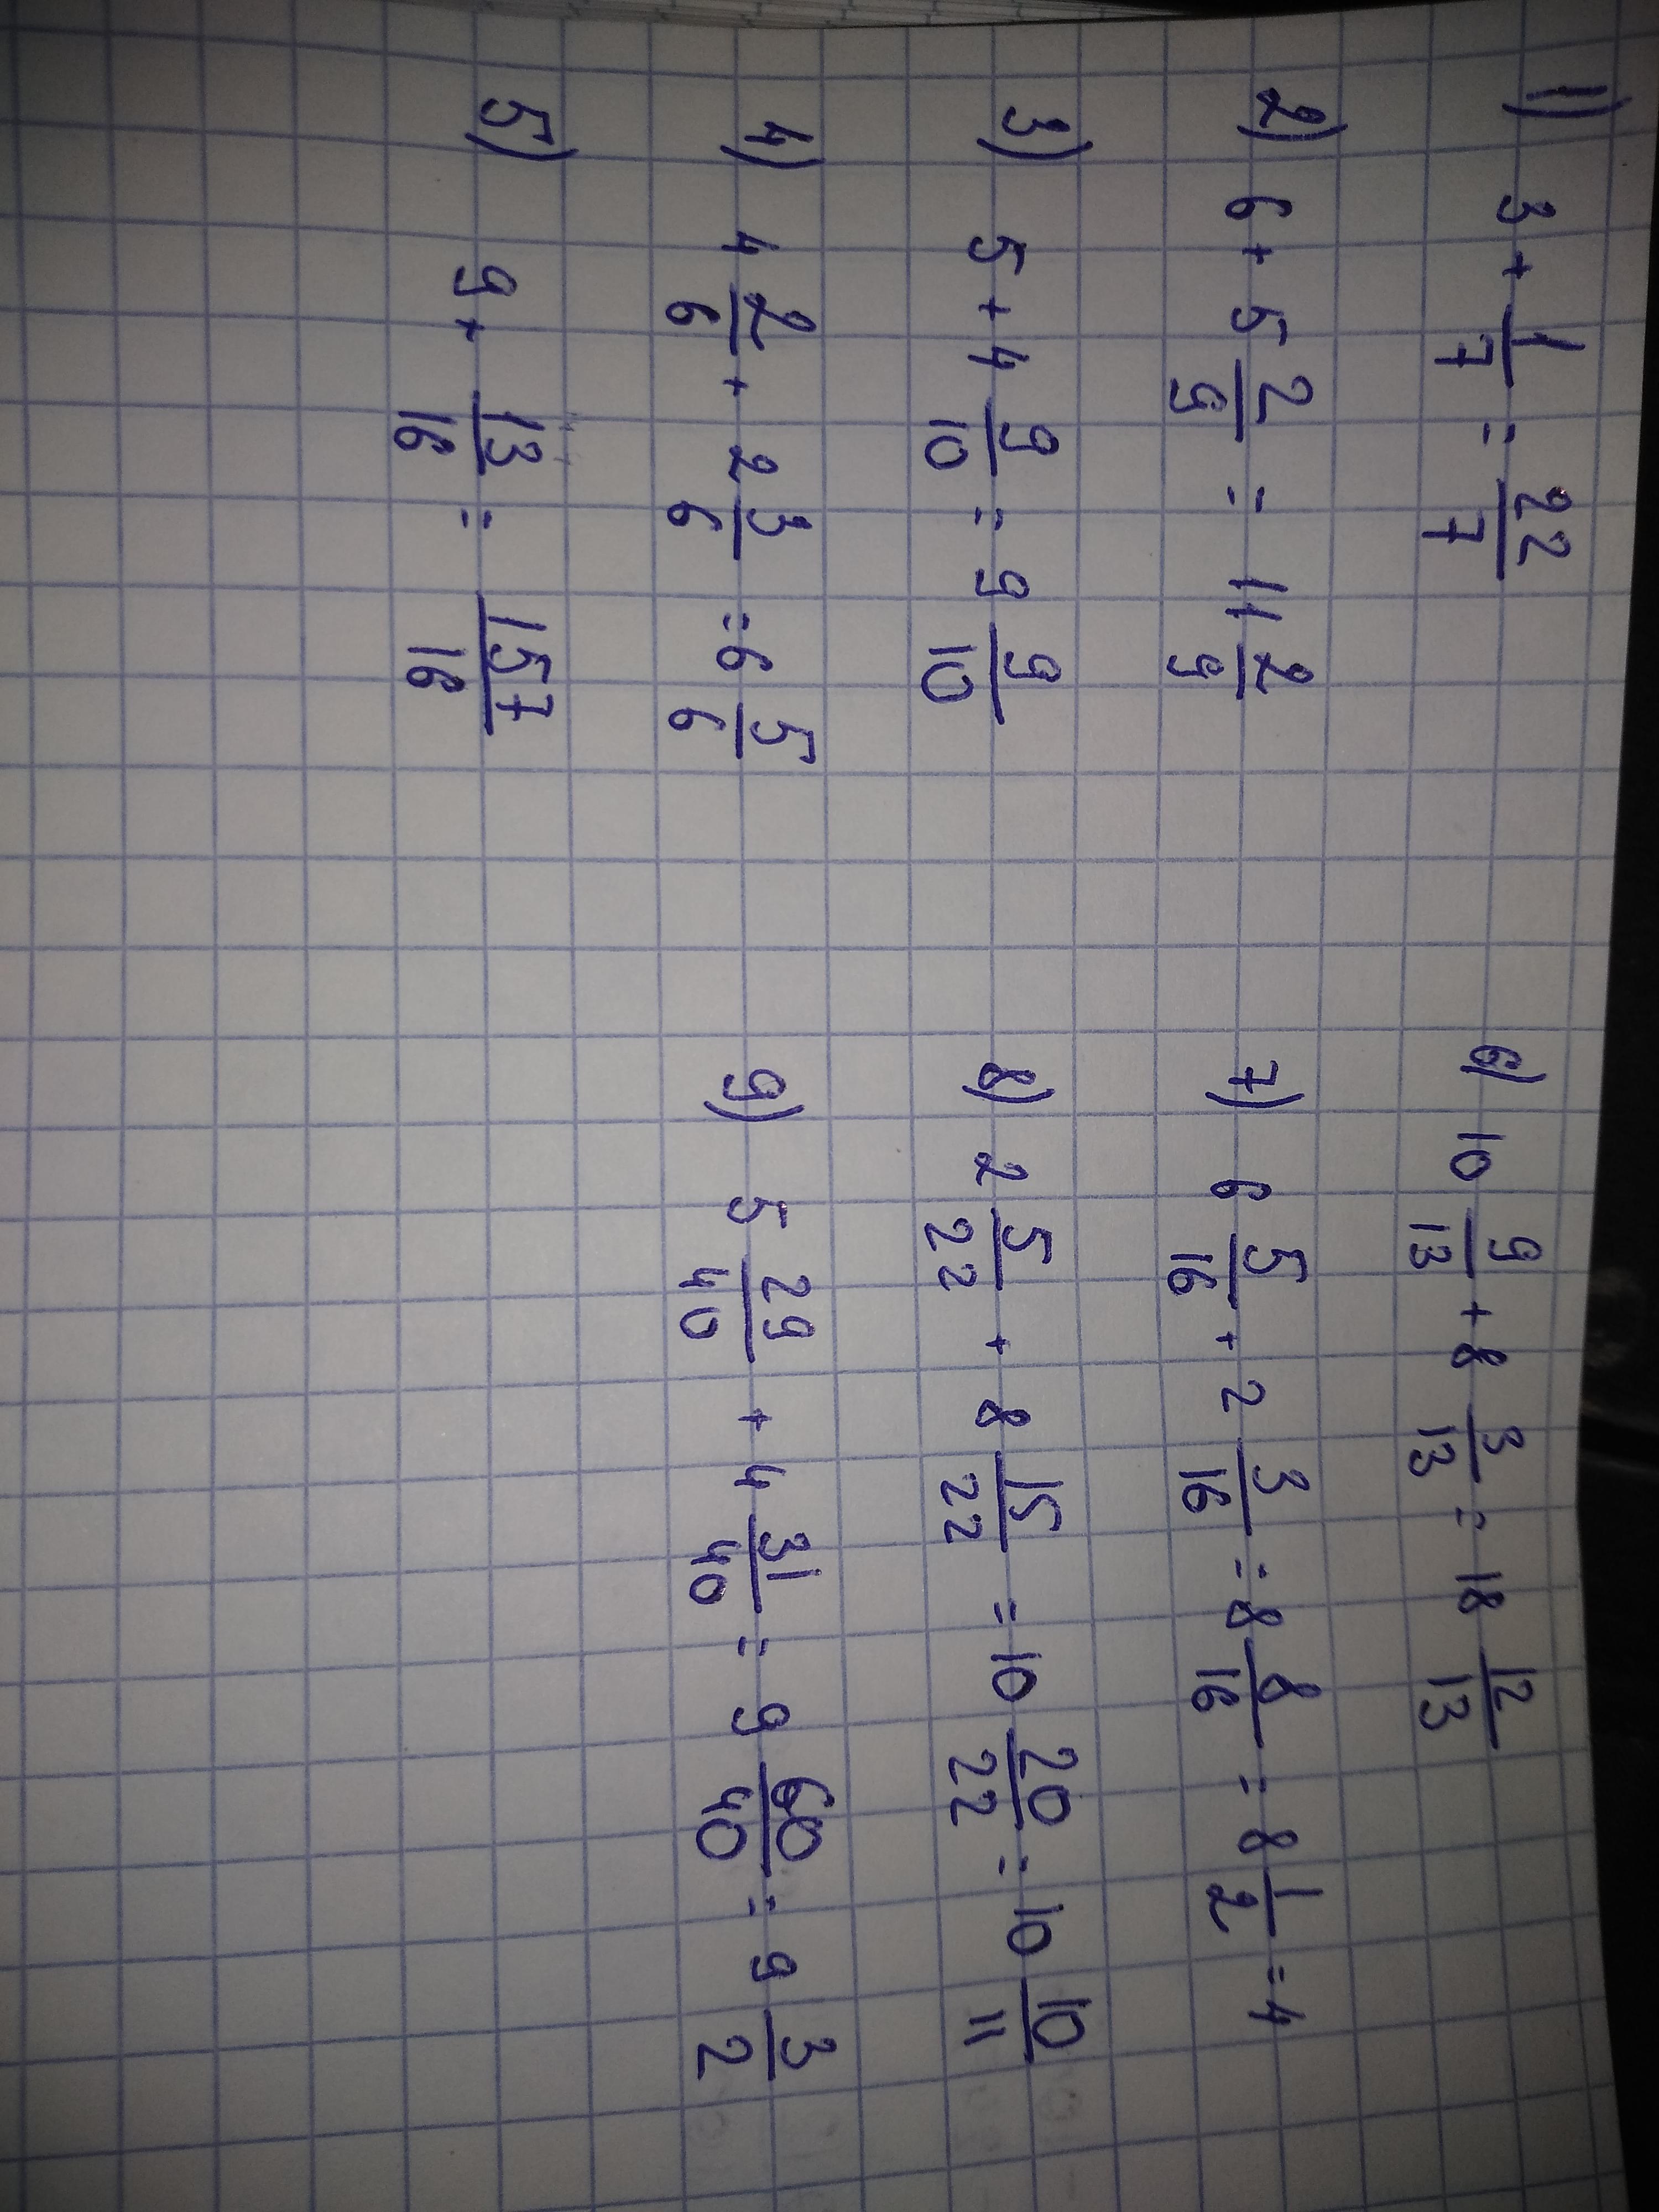 1) 3 + 1/7 = 22/7
2) 6 + 5 2/9 = 11 2/9
3) 5 + 4 9/10 = 9 9/10
4) 4 2/6 + 2 3/6 = 6 5/6
5) 9 + 13/16 = 157/16
6) 10 9/13 + 8 3/13 = 18 12/13
7) 6 5/16 + 2 3/16 = 8 8/16 = 8 1/2 = 4
8) 2 5/22 + 8 15/22 = 10 20/22 = 10 10/11
9) 5 29/40 + 4 31/40 = 9 60/40 = 9 3/2